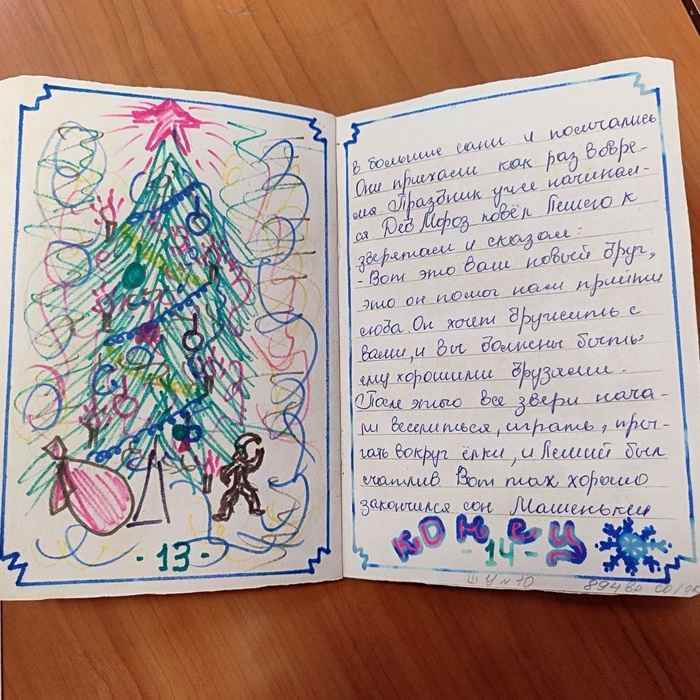 - 13 -
в большие сани и помчались
Они приехали как раз вовре-
мя Праздник уже начинал-
ся. Дед Мороз повёл Лешего к
зверятам и сказал:
- Вот это ваш новый друг,
это он помог нам прийти
сюда Он хочет дружить с
вами, и вы должены быть
ему хорошими друзями.
После этого все звери нача-
ли веселиться, играть, пры-
гать вокруг ёлки, и Леший был
счатлив Вот так хорошо
закончился сон Машеньки
конец
- 14 -